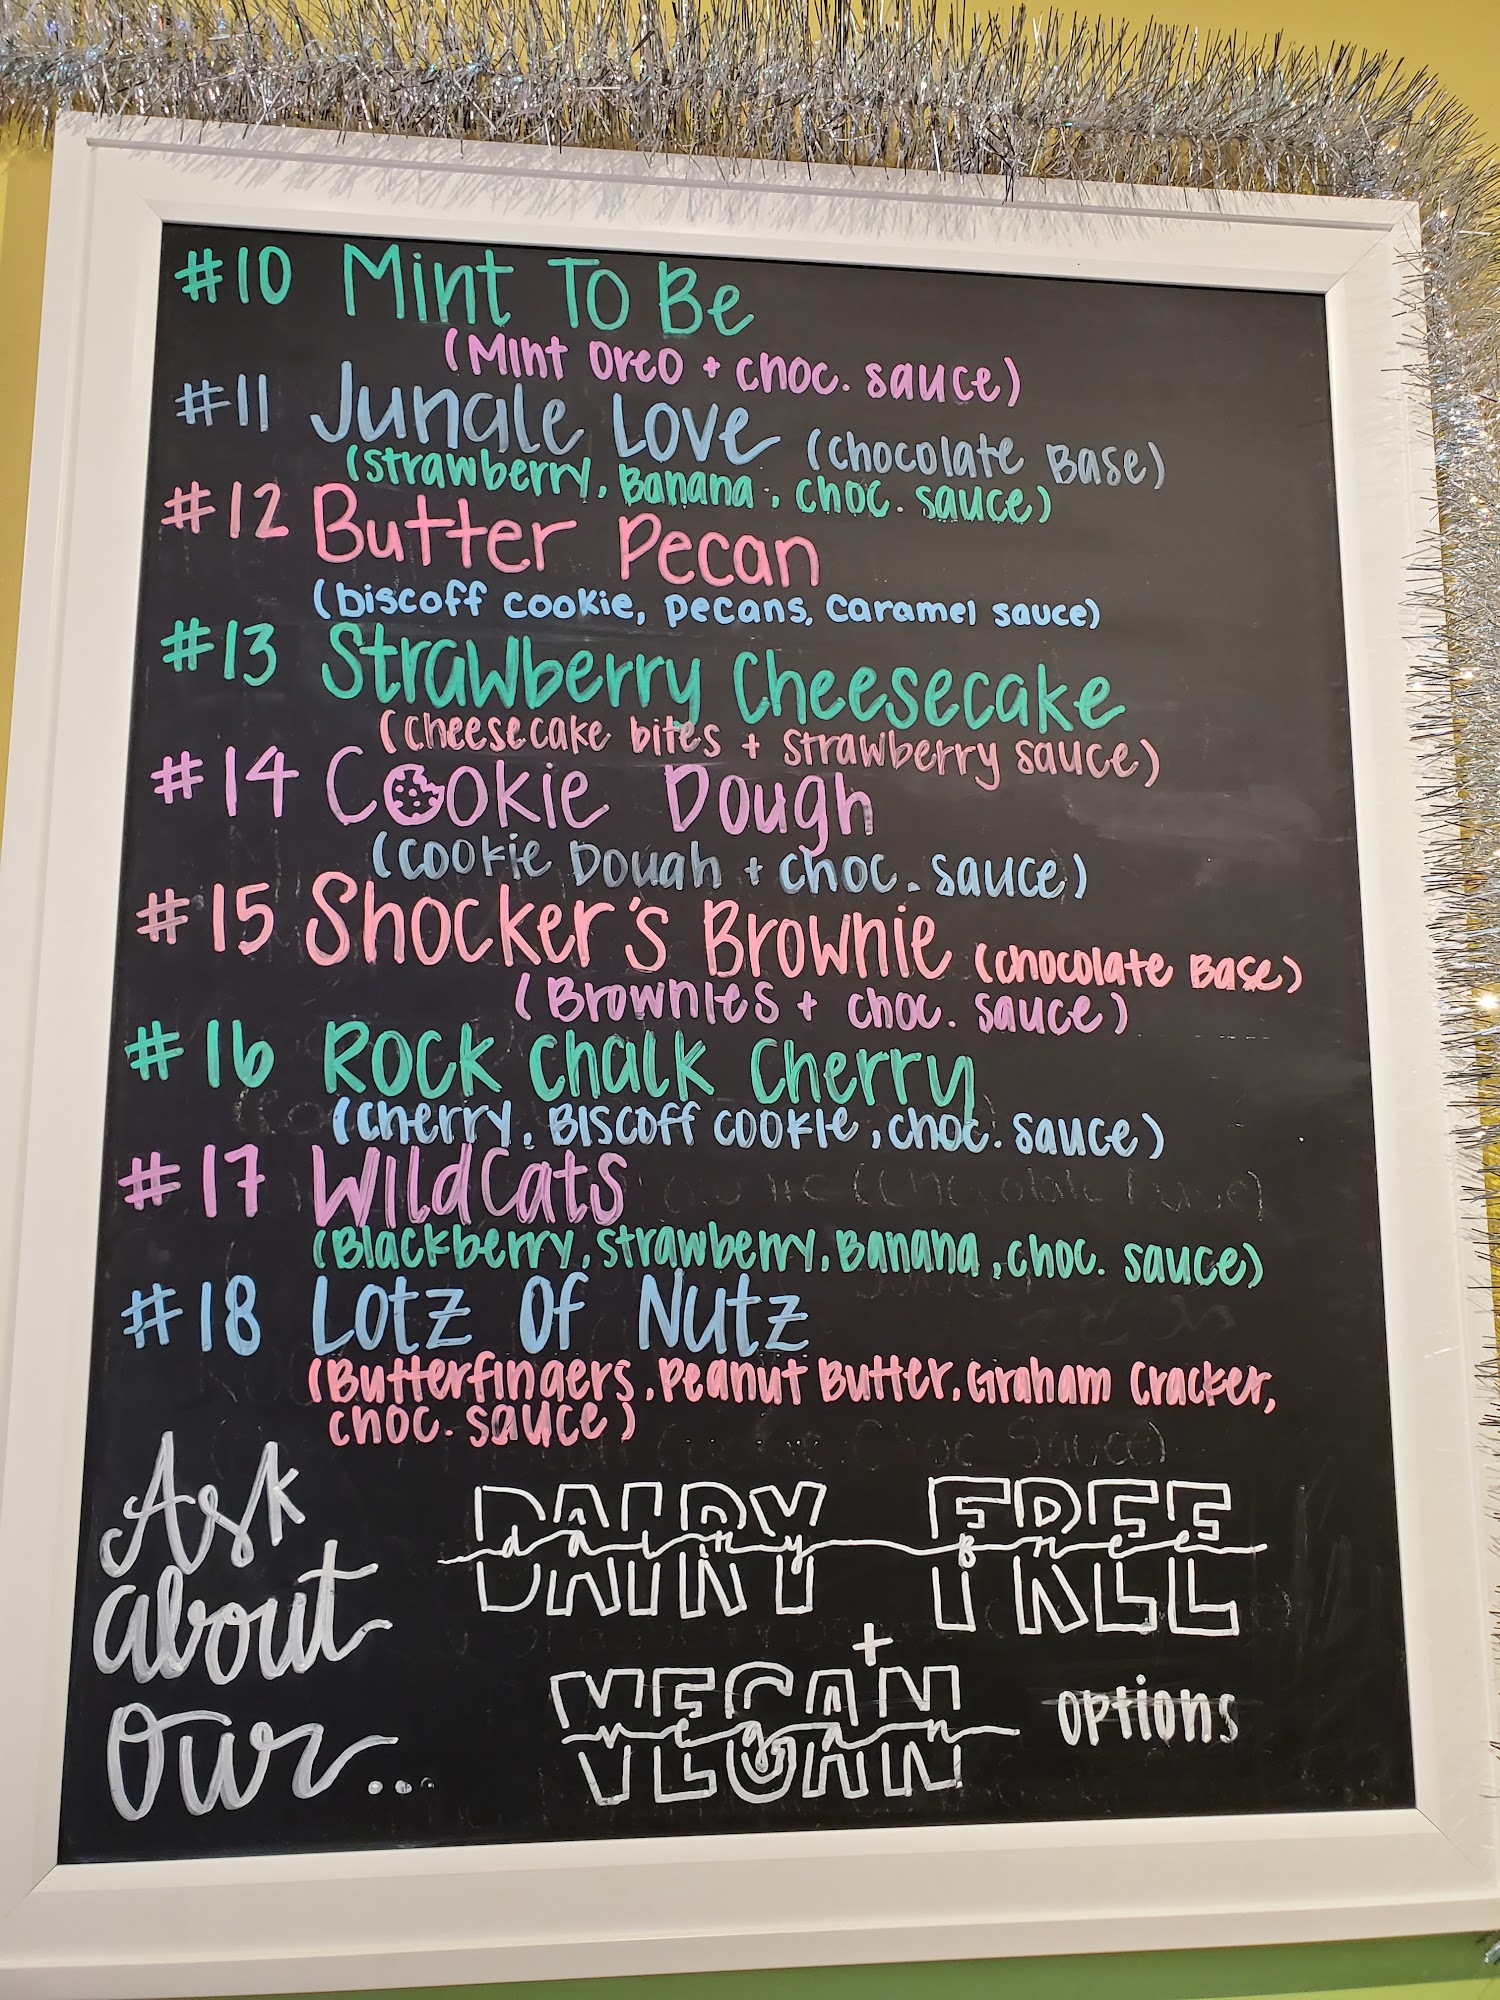 #10 Mint To Be
(Mint Oreo + choc. sauce)
#11 Jungle Love (Chocolate Base)
(strawberry, Banana, choc. sauce)
#12 Butter Pecan
(biscoff cookie, pecans, caramel sauce)
#13 Strawberry Cheesecake
(Cheesecake bites + strawberry sauce)
#14 Cookie Dough
(Cookie Dough + choc. sauce)
#15 Shocker's Brownie (Chocolate Base)
(Brownies + choc. sauce)
#16 Rock Chalk Cherry
(Cherry, Biscoff cookie, choc. sauce)
#17 WildCats
(Blackberry, strawberry, Banana, choc. sauce)
#18 Lotz Of Nutz
(Butterfingers, Peanut Butter, Graham Cracker,
choc. sauce)
Ask about our...
DAIRY dairy FREE free
+
VEGAN vegan options